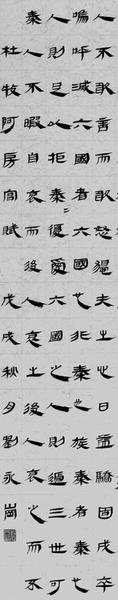 人不敢言而敢怒獨夫之心日益驕固戍卒
嗚呼滅六國者六國也非秦也族秦者秦也
人則足以拒秦〻復愛六國之人則遞三世可
秦人不暇自哀而後人哀之後人哀之而不
杜牧阿房宮賦戊戌秋月劉永崗